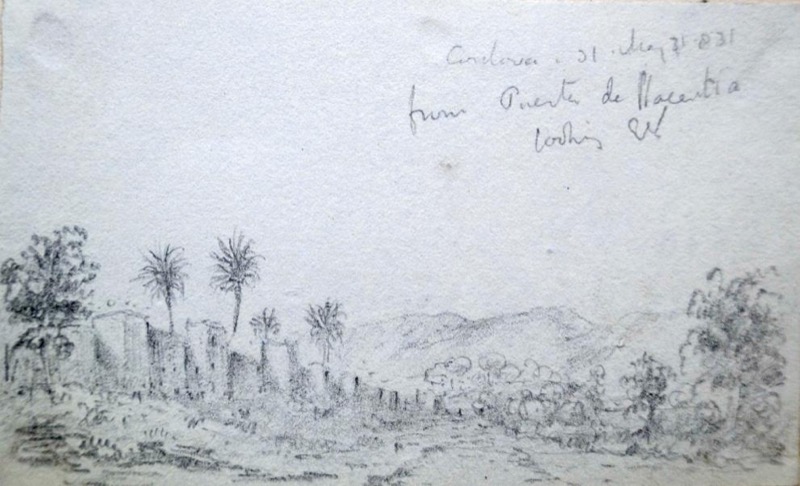 Cordova. 31. May 31. 831
from Puerta de Placentia
looking